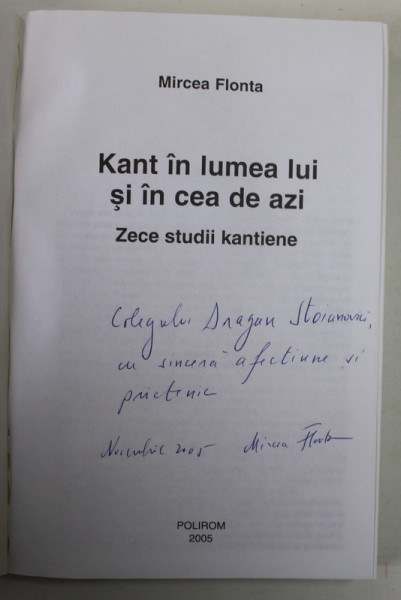 Mircea Flonta
Kant în lumea lui
şi în cea de azi
Zece studii kantiene
Colegului Dragan Stoianovici,
cu sinceră afecţiune şi
prietenie
Noiembrie 2005 Mircea Flonta
POLIROM
2005